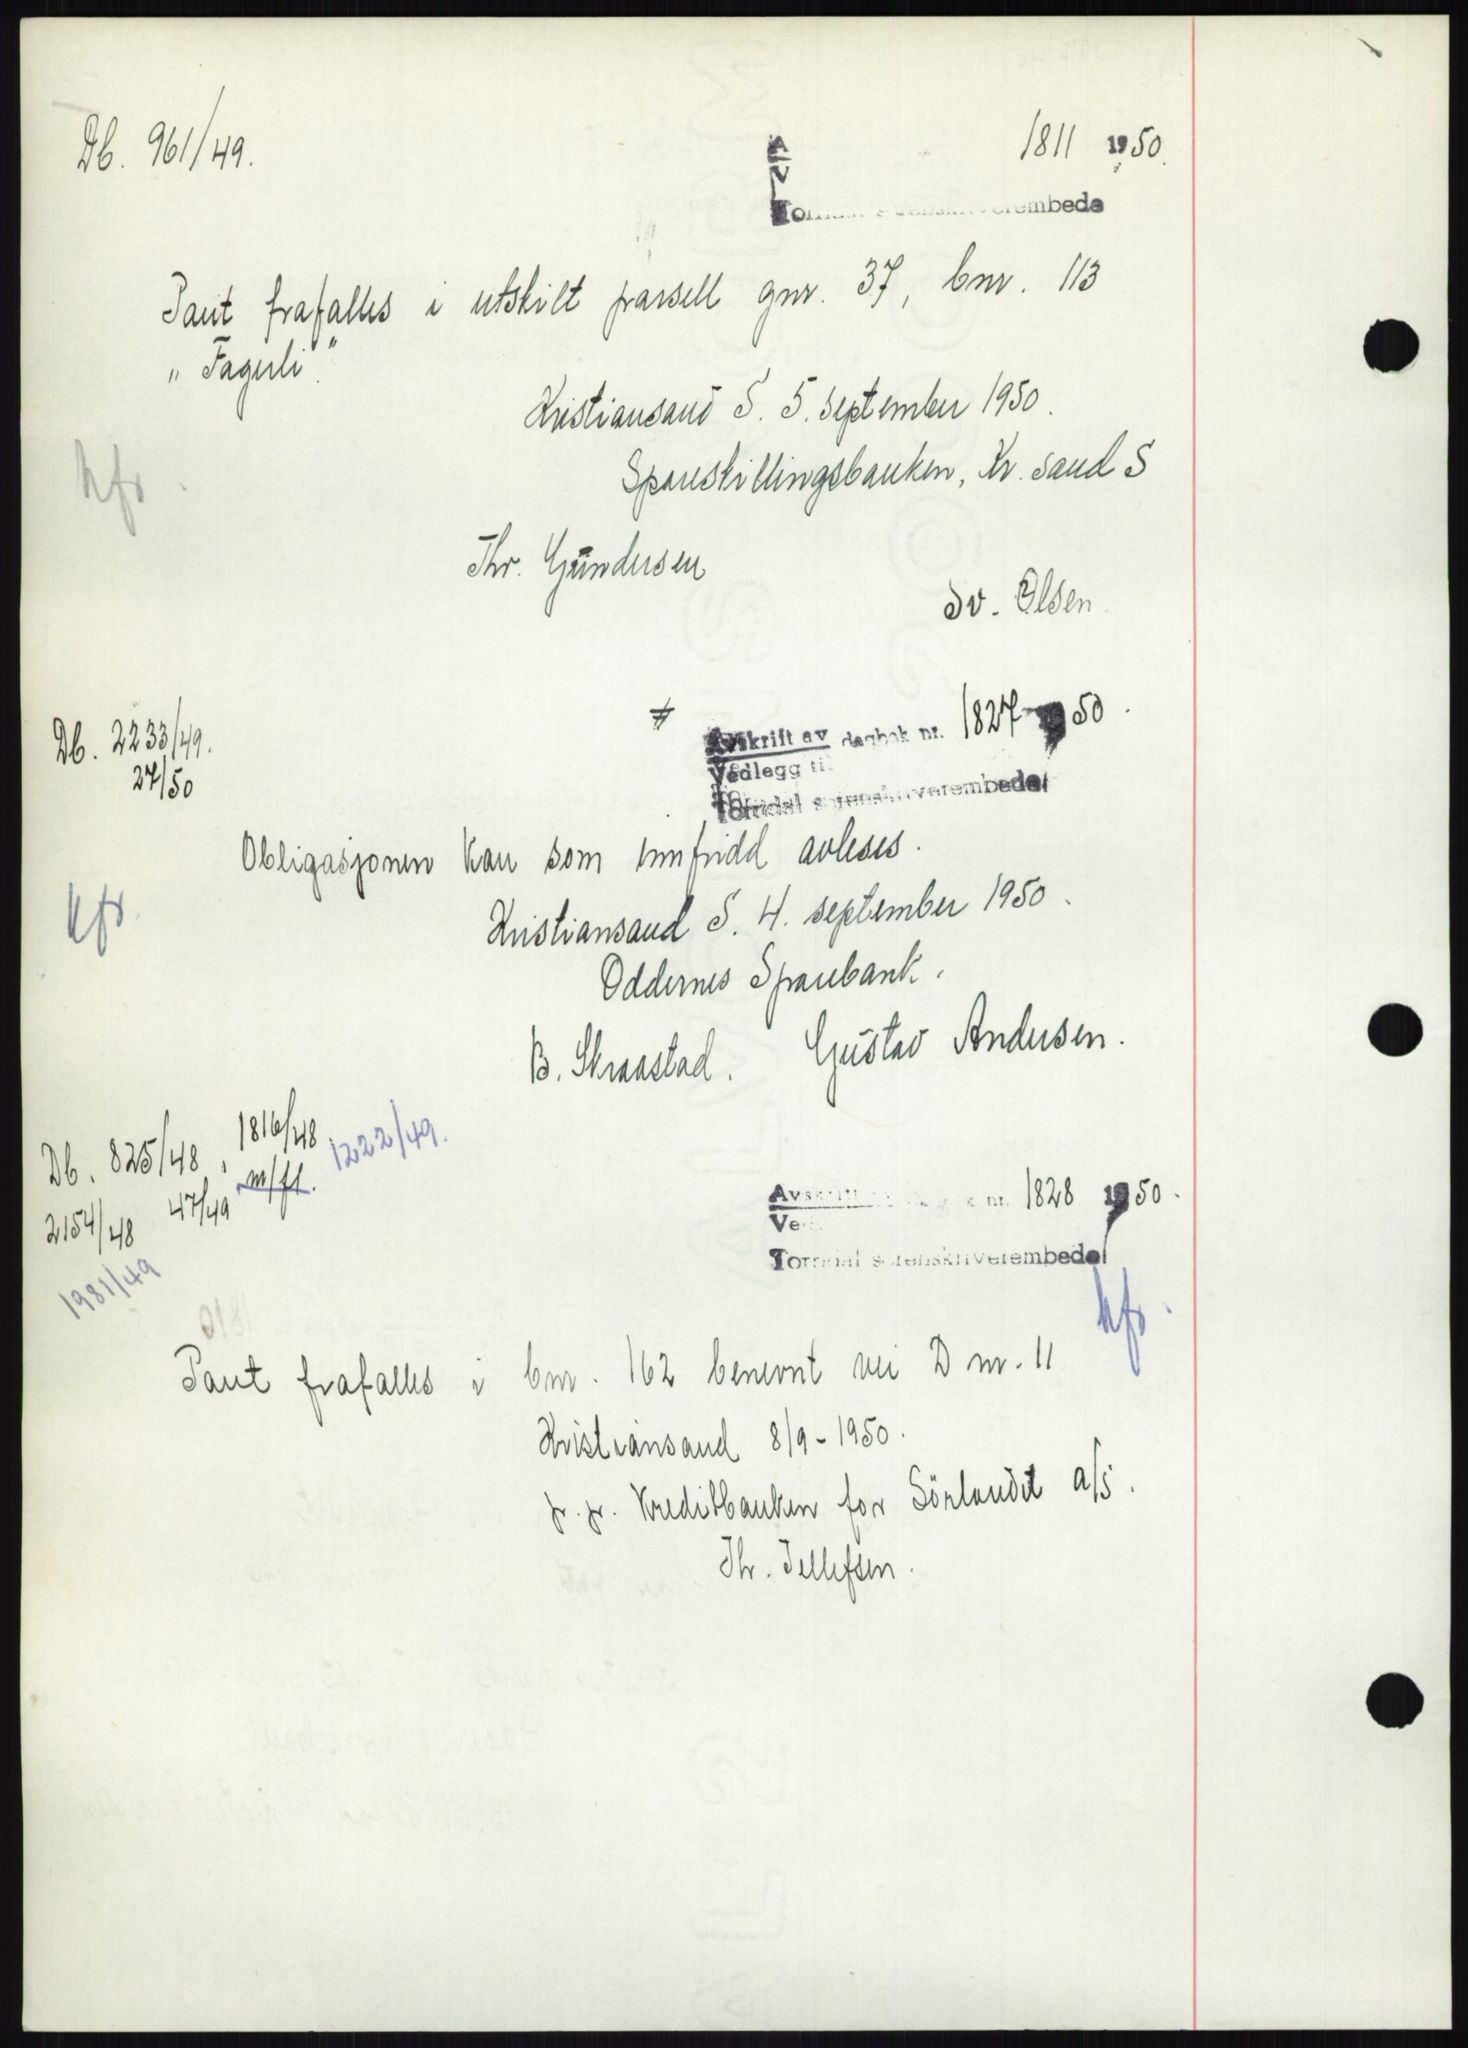 Db. 961/49.
1811 1950.
A
V
Torridal sorenskriverembede
Pant frafalles i utskilt parsell gnr. 37, bnr. 113
"Fagerli".
Kristiansand S. 5. september 1950.
Spareskillingsbanken, Kr. sand S
kfr.
Thr. Gundersen
Sv. Olsen
Db. 2233/49.
27/50
Avskrift av dagbok nr. 1827 1950.
Vedlegg til
Torridal sorenskriverembede
Obligasjonen kan som innfridd avleses.
kfr.
Kristiansand S. 4. september 1950.
Oddernes Sparebank.
B. Skraastad. Gustav Andersen.
Db. 825/48, 1816/48 1222/49.
m/fl.
2154/48 47/49
1981/49
Avskrift av dagbok nr. 1828 1950.
Ve
Torridal sorenskriverembede
kfr.
Pant frafalles i bnr. 162 benevnt vei D nr. 11
Kristiansand 8/9-1950.
p.p. Kreditbanken for Sörlandet a/s.
Thr. Tellefsen.